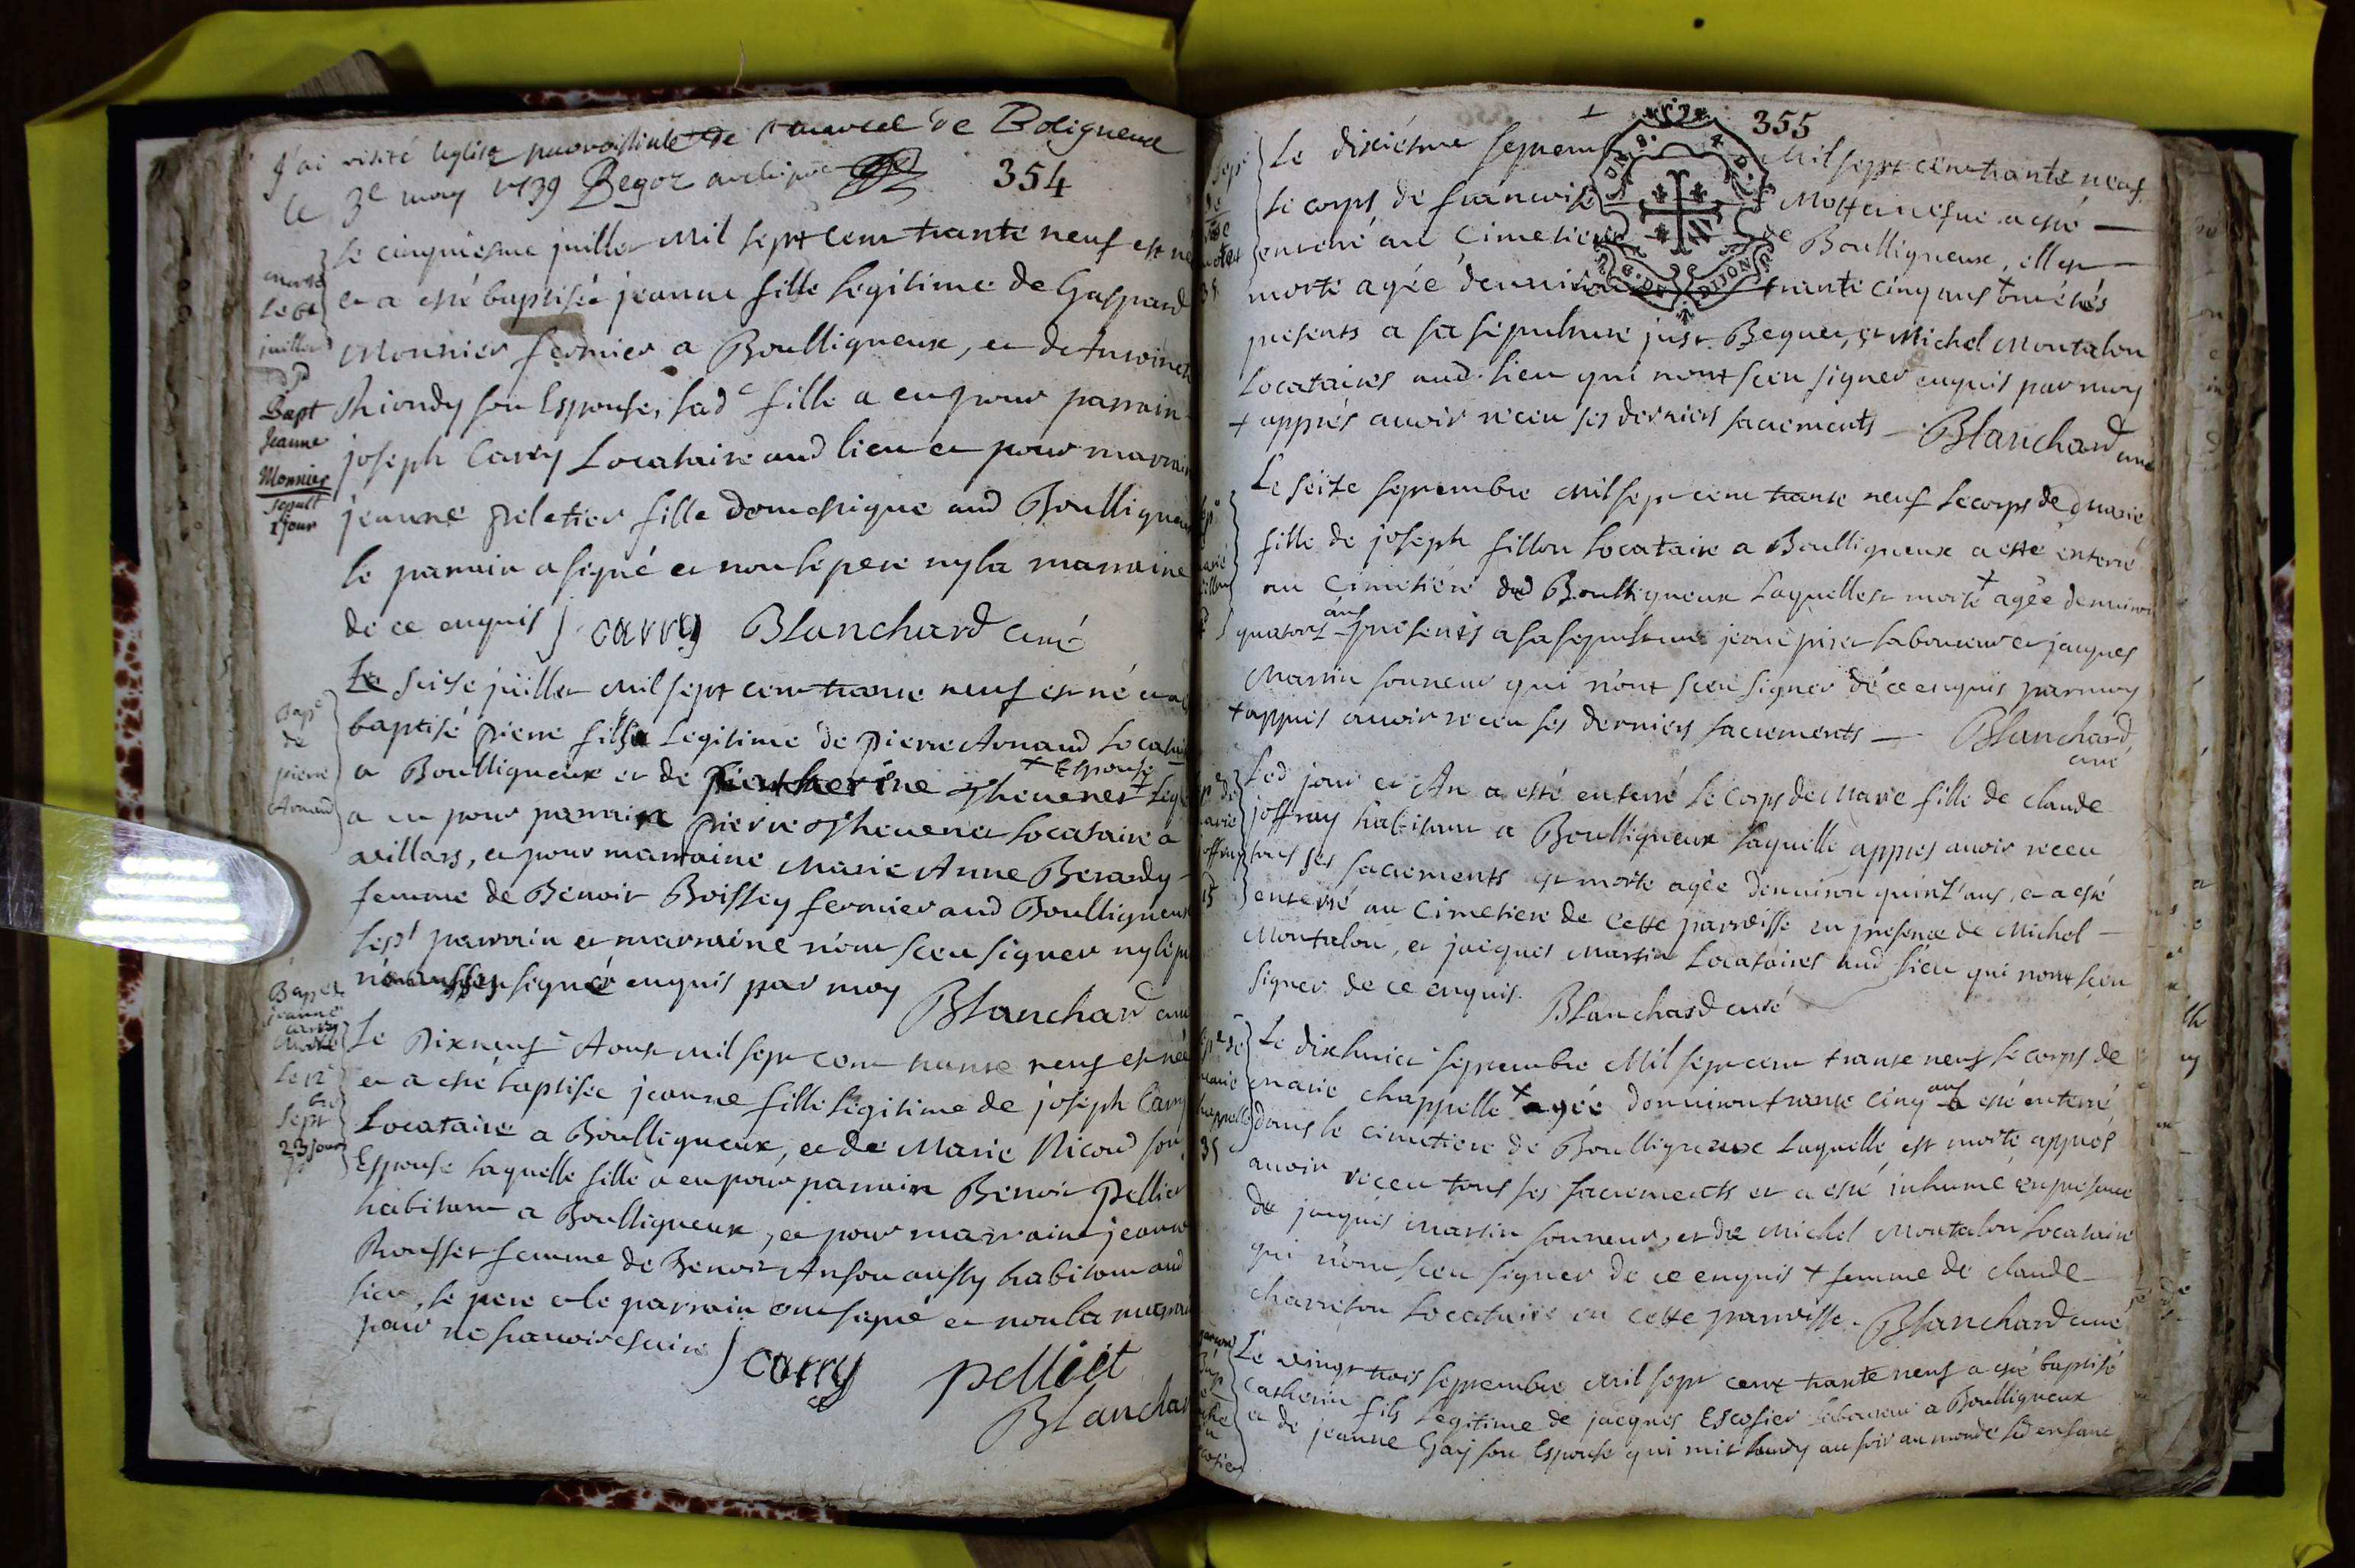 J'ai visité leglise parroissiale de St marcel de Boligneux
le 3e may 1739 Begoz archiprê
354
Le cinquiesme juillet Mil sept cent trante neuf est né
et a esté baptisée jeanne fille legitime de Gaspard
Monnier fermier a Boulligneux, et de Antoinet
Thiondy son Espouse, lade fille a eu pour parrain
joseph Carry Locataire aud lieu et pour marrain
jeanne pelletier fille domestique aud Boulligneu
le parrain a signé et non le pere ny la marraine
de ce enquis carry Blanchard curé
morte
Le 6e
juillet
Bapt
Jeanne
Monnier
Sepult
1 jour
Le seise juillet Mil sept cent trante neuf est né et a
baptisé pierre fils Legitime de pierre Arnaud Locatai
a Boulligneux et de Catherine Thevenet + Espouse
a eu pour parrain pierre Thevenet Locataire a
villars, et pour marraine Marie Anne Berardy
femme de Benoit Boissey fermier aud Boulligneux
parrain et marraine n'ont sceu signer ny le pe
signer enquis par moy
Blanchard curé
Bapt
de
pierre
Arnaud
Le Dixneuf Aoust mil sept cent trante neuf est née
et a esté baptisée jeanne fille legitime de joseph Carry
Locataire a Boulligneux, et de Marie Nicoud son
Espouse laquelle fille a eu pour parrain Benoit Pellier
habitant a Boulligneux, et pour marraine jeanne
Rousset femme de Benoit Anson aussy habitant aud
lieu, le pere et le parrain ont signé et non la marrai
pour ne scavoir escrire
carry pelliet
Blanchar
Bapt de
jeanne
carry
morte
Le 12e
Sept
23 jours
355
Le dixiesme septem Mil sept cent trante neuf
le corps de francoise Mottar a esté
enterré au Cimetiere de Boulligneux, ellest
morte agée denviron trante cinq ans + temoins
presents a sa sepulture just Beguet, et Michel Montalon
Locataires aud. lieu qui n'ont sceu signer enquis par moy
+ appres avoir receu ses derniers sacrements Blanchard curé
Le seize septembre Mil sept cent trante neuf le corps de Marie
fille de joseph fillon Locataire a Boulligneux a esté enterré
au Cimetiere dud Boulligneux Laquelle est morte + agée denviron
quatorz ans presents a sa sepulture jean piret laboureur et jacques
Martin sonneur qui n'ont sceu signer de ce enquis par moy
+ appres avoir receu ses derniers sacrements Blanchard
curé
Led jour et An a esté enterré le corps de Marie fille de claude
joffray habitant a Boulligneux laquelle appres avoir receu
tous ses sacrements est morte agée denviron quinz'ans, et a esté
enterré au Cimetiere de cette parroisse en presence de Michel
Montalon, et jacques Martin Locataires aud lieu qui n'ont sceu
signer de ce enquis. Blanchard curé
Le dixhuict septembre Mil sept cent trante neuf le corps de
Marie chappelle + agée denviron trante cinq ans a esté enterré
dans le cimetiere de Boulligneux Laquelle est morte appres
avoir receu tous ses sacrements et a esté inhumé en presence
de jacques Martin sonneur, et de Michel Montalon Locataire
qui n'ont sceu signer de ce enquis + femme de claude
charreton Locataire en cette parroisse. Blanchard curé
Le vingt trois septembre Mil sept cent trante neuf a esté baptisé
Catherin fils Legitime de jacques Escofier Laboureur a Boulligneux
et de jeanne Gay son Espouse qui mit lundy au soir au monde led enfant